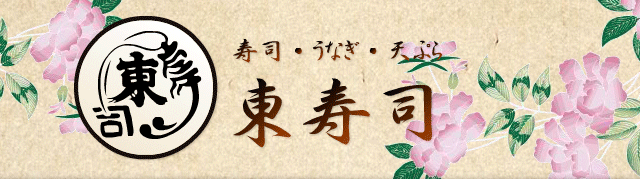 東寿司
寿司・うなぎ・天ぷら
東寿司